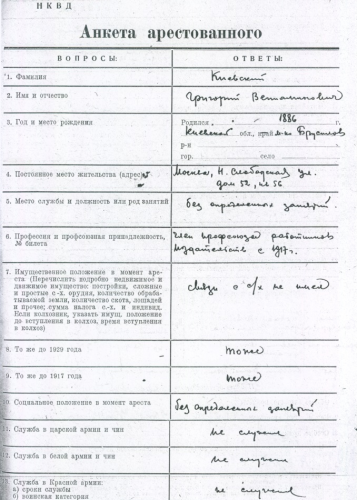 НКВД
Анкета арестованного
ВОПРОСЫ: ОТВЕТЫ:
1. Фамилия Киевский
2. Имя и отчество Григорий
3. Год и место рождения Родился 1886 г.
Киевская обл., край м-ко Брусилов
р-н
гор. село
4. Постоянное место жительства (адрес) Москва, Н. Слободская ул.
дом 52, кв 56
5. Место службы и должность или род занятий без определенных занятий.
6. Профессия и профсоюзная принадлежность, № билета Член профсоюза работников
издательств с 1917 г.
7. Имущественное положение в момент аре-
ста (Перечислить подробно недвижимое и
движимое имущество: постройки, сложные
и простые с.-х. орудия, количество обраба-
тываемой земли, количество скота, лошадей
и прочее; сумма налога с.-х. и индивид.
Если колхозник, указать имущ. положение
до вступления в колхоз, время вступления
в колхоз)
Связи с с/х не имел
8. То же до 1929 года тоже
9. То же до 1917 года тоже
10. Социальное положение в момент ареста без определенных занятий
11. Служба в царской армии и чин не служил
12. Служба в белой армии и чин не служил
13. Служба в Красной Армии: не служил
а) сроки службы
б) воинская категория